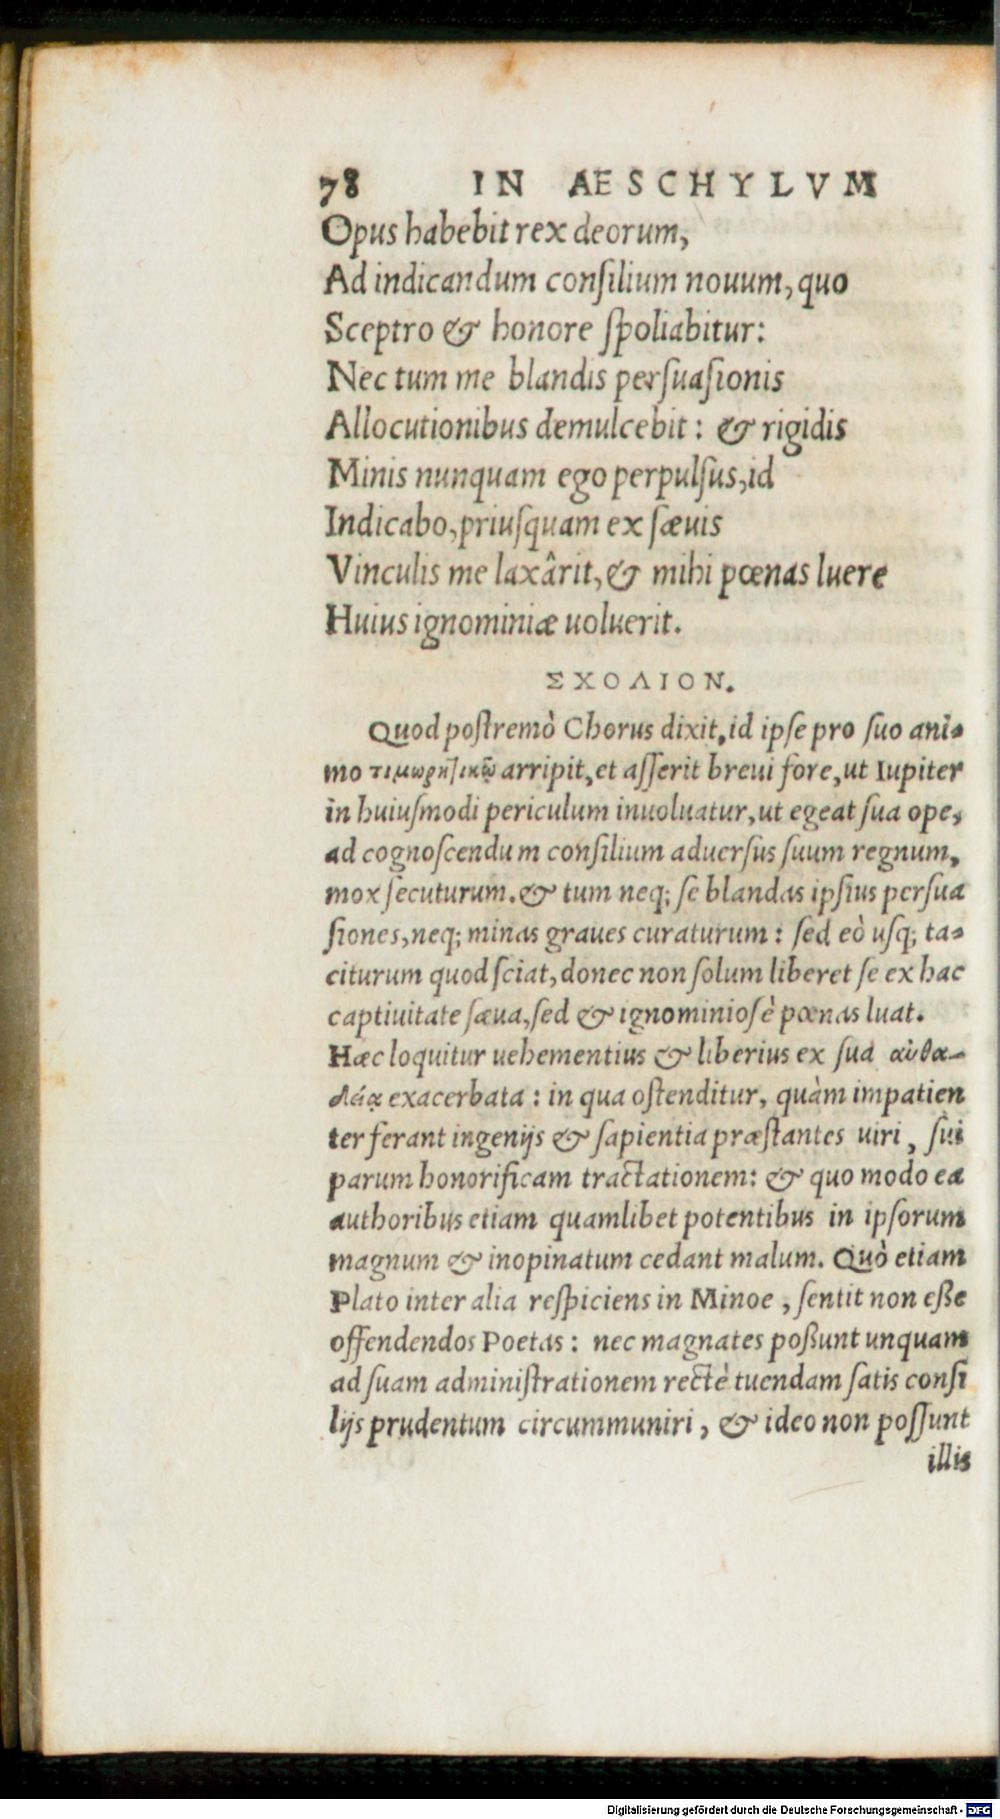 78 IN AESCHYLVM
Opus habebit rex deorum,
Ad indicandum consilium nouum, quo
Sceptro & honore spoliabitur:
Nec tum me blandis persuasionis
Allocutionibus demulcebit: & rigidis
Minis nunquam ego perpulsus, id
Indicabo, priusquam ex sæuis
Vinculis me laxârit, & mihi pœnas luere
Huius ignominiæ uoluerit.
ΣΧΟΛΙΟΝ.
Quod postremò Chorus dixit, id ipse pro suo ani-
mo τιμωρητικῷ arripit, et asserit breui fore, ut Iupiter
in huiusmodi periculum inuoluatur, ut egeat sua ope,
ad cognoscendum consilium aduersus suum regnum,
mox secuturum. & tum neq; se blandas ipsius persua
siones, neq; minas graues curaturum: sed eò usq; ta-
citurum quod sciat, donec non solum liberet se ex hac
captiuitate sæua, sed & ignominiosè pœnas luat.
Hæc loquitur uehementius & liberius ex sua αὐθα-
δείᾳ exacerbata: in qua ostenditur, quàm impatien
ter ferant ingenijs & sapientia præstantes uiri, sui
parum honorificam tractationem: & quo modo ea
authoribus etiam quamlibet potentibus in ipsorum
magnum & inopinatum cedant malum. Quò etiam
Plato inter alia respiciens in Minoe, sentit non eße
offendendos Poetas: nec magnates poßunt unquam
ad suam administrationem rectè tuendam satis consi
lijs prudentum circummuniri, & ideo non possunt
illis
Digitalisierung gefördert durch die Deutsche Forschungsgemeinschaft - DFG